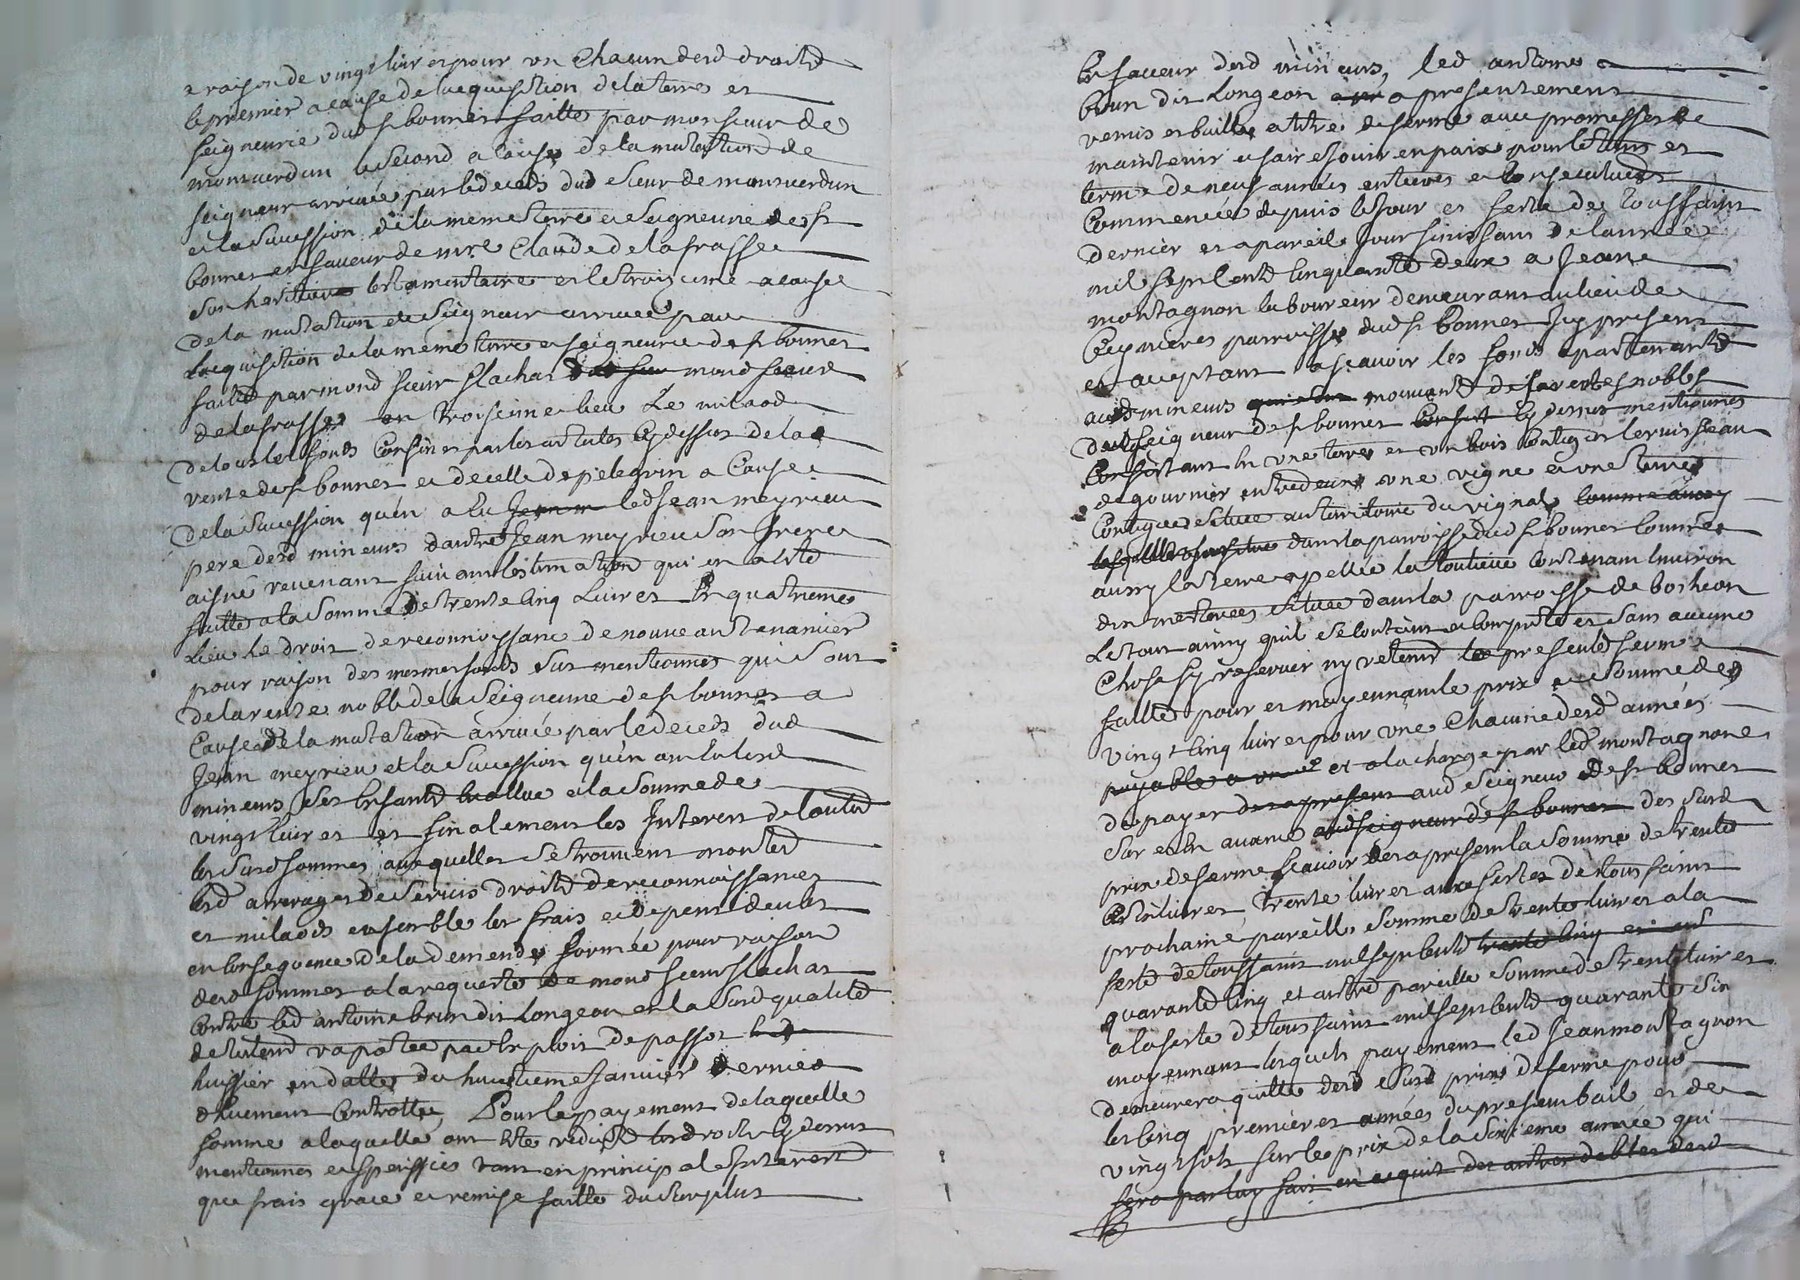 a raison de vingt livres pour un chacun desd droitd
le premier a cause de lacquisition de la terre et
seigneurie dud st bonnet faitte par monsieur de
montverdun le second a cause de la mutation de
seigneur arrivée par le deceds dud sieur de montverdun
et la sucession de la meme terre et seigneurie de st
bonnet en faveur de mre Claude de la frasse
son heritier testamentaire et le troisieme a cause
de la mutation de seigneur arrivée par
lacquisition de la meme terre et seigneurie de st bonnet
faitte par mond sieur flachat mond sieur
de la frasse en troisieme lieu le milaod
de tous les fonds confinés par les articles cy dessus de la
rente de st bonnet et de celle de pelegrin a cause
de la sucession quen a eu led Jean meyrieu
pere desd mineurs dautre Jean meyrieu son frere
aisné revenant suivant lestimation qui en a eté
faitte a la somme de trente cinq livres En quatrieme
lieu le droit de reconnoissance de nouveau tenancier
pour raison des memes fonds sus mentionnes qui sont
de la rente noble de la seigneurie de st bonnet a
cause de la mutation arrivée par le deceds dud
Jean meyrieu et la sucession quen ont eu lesd
mineurs ses enfantd a la somme de
vingt livres et finalement les Interets de toutes
les susd sommes auxquelles se trouvent monter
lesd arrerages de servis droitd de reconnoissances
et milaods ensemble les frais et depens deubs
en consequence de la demende formée pour raison
desd sommes a la requette de mond sieur flachat
contre led antoine brun dit Longeon en la susd qualité
de tuteur raportée par exploit de passot
huissier en datte du huitieme Janvier dernier
duement controllé, Pour le payement de laquelle
somme a laquelle ont eté reduits les droits cy dessus
mentionnes et speciffiés tant en principal Interests
que frais grace et remise faitte du surplus
En faveur desd mineurs, led antoine
brun dit Longeon a presentement
remis et baillé a titre de ferme avec promesse de
maintenir et faire jouir en paix pour le tems et
terme de neuf années entieres et consecutives
Commencée depuis le jour et feste de Toussaint
dernier et a pareil jour finissant de lannée
mil sept cent cinquante deux a Jean
montagnon laboureur demeurant au lieu de
Cheynieres parroisse dud st bonnet Icy present
et aceptant ascavoir les fonds apartenantd
auxd mineurs mouvantd de la rentes nobles
dud seigneur de st bonnet cy dessus mentionnes
Consistant en une terre et un bois contigus le ruisseau
de gournier entredeux une vigne et une terre
Contigues situé au territoire du vignal comme aussy
dans la parroisse dud st bonnet comme
aussy la terre appellée la contenant environ
dix meterées situee dans la parroisse de boisheon
Le tout ainsy quil se contient et comporte et sans aucune
chose sy reserver ny retenir la presente ferme
faitte pour et moyennant le prix et somme de
vingt cinq livres pour une chacune desd années
payable et a la charge par led montagnon
de payer aud seigneur de st bonnet
sur et en avance des susd
prix de ferme scavoir des a present la somme de trente
livres trente livres aux festes de toussaint
prochaine pareille somme de trente livres a la
feste de toussaint mil sept cent
quarante cinq et autre pareille somme de trente livres
a la feste de toussaint mil sept cent quarante six
moyennant lesquels payement led Jean montagnon
demeurera quitte desd susd prix de ferme pour
les cinq premieres années du present bail et de
vingt sols sur le prix de la sixieme année qui
sera par luy fait en acquit des autres debtes desd